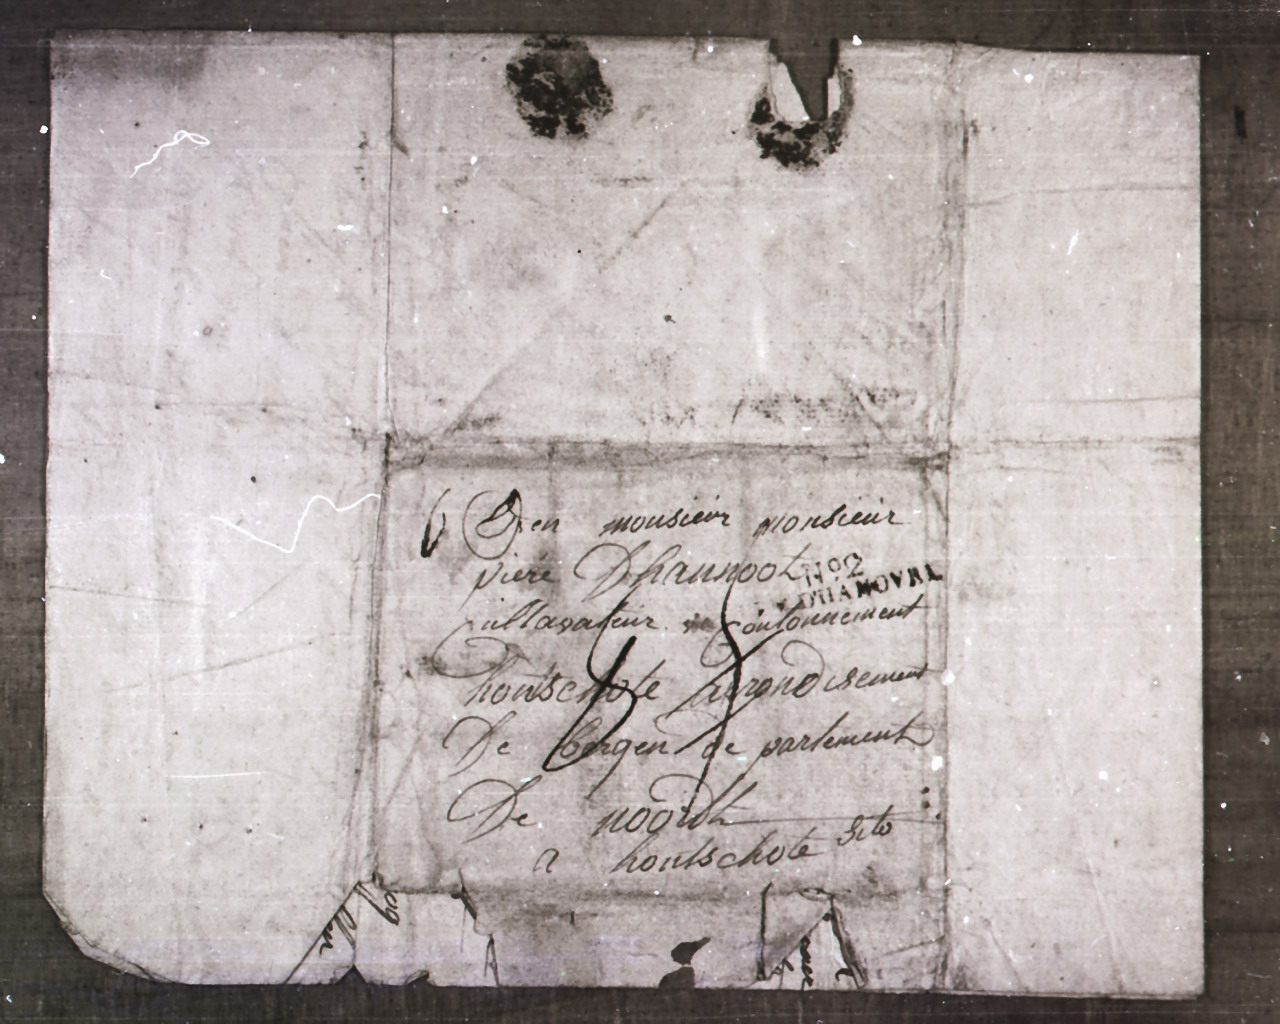 Den monsieur monsieur
piere Dhaunoot
No 2
D'HANOVRE
cultavateur Contonnement
hontschote arondisement
De bergen de partement
De noordt
a hontschote Sito